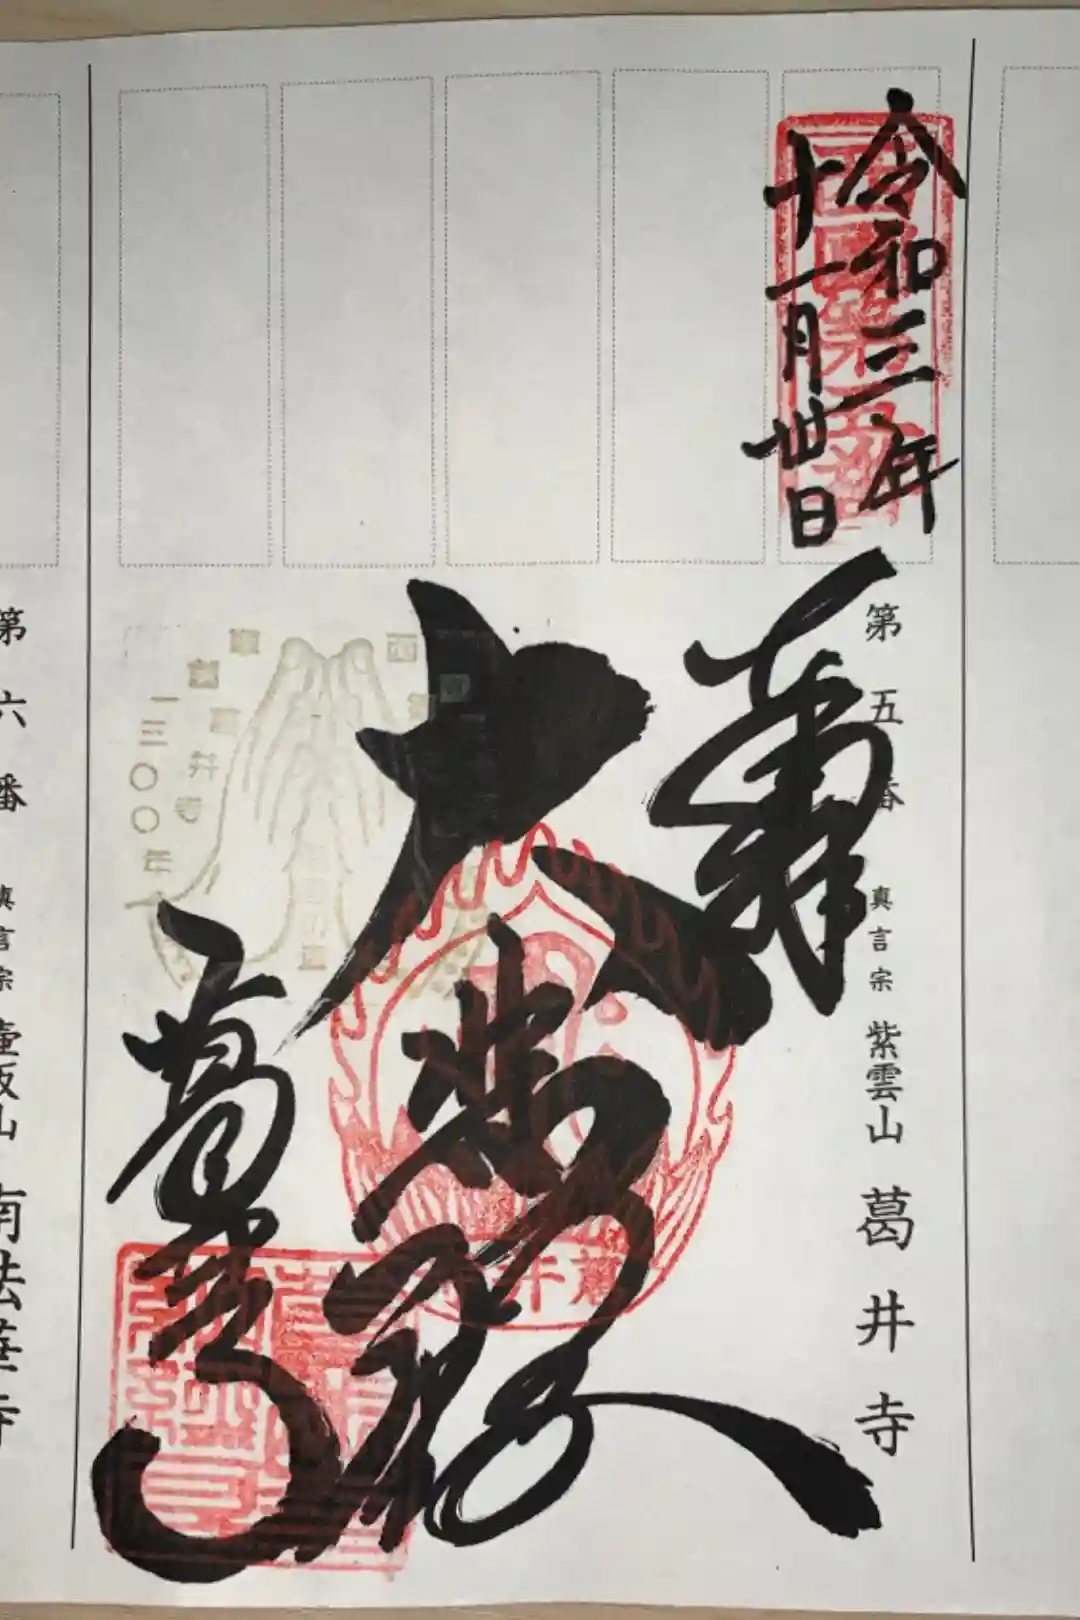 令和三年
十一月卅日
奉拝
第五番 真言宗 紫雲山 葛井寺
大悲殿
葛井寺
西国
草創
一三〇〇年
葛井寺
第六番 真言宗 壷阪山 南法華寺